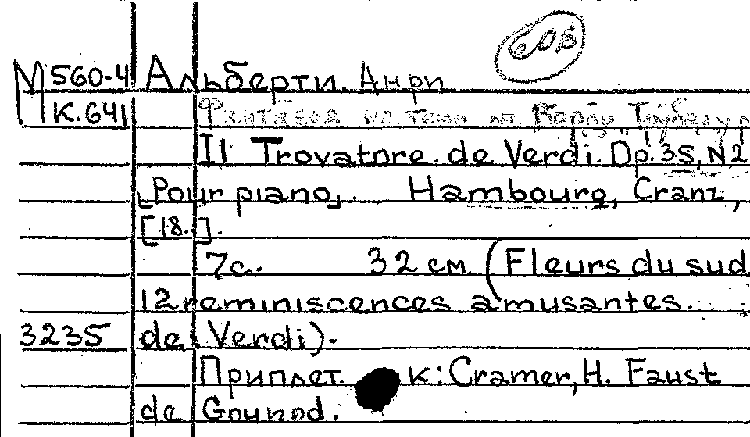 60В
М 560-4 Альберти. Анри
К.641 Фантазия на тему оп. Верди Трубадур
Il Trovatore. de Verdi. Op. 35, N2
[Pour piano]. Hambourg, Cranz,
[18..].
7с. 32 см (Fleurs du sud
12 reminiscences amusantes...
3235 de Verdi).
Приплет. к: Cramer, H. Faust
de Gounod.